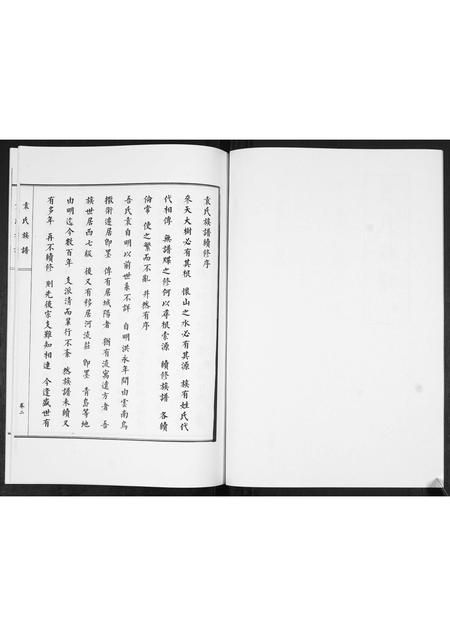 袁氏族譜續修序
參天大樹必有其根 懷山之水必有其源 族有姓氏代
代相傳 無譜牒之修何以尋根索源 續修族譜 各續
倫常 使之繁而不亂 井然有序
吾氏袁自明以前世系不詳 自明洪永年間由雲南烏
撒衛遷居即墨 傳有居城陽者 猶有流寓遠方者 吾
族世居西七級 後又有移居河流莊 即墨 青島等地
由明迄今數百年 支派清而輩行不紊 然族譜未續又
有多年 再不續修 則先後宗支難知相連 今逢盛世有
袁氏族譜
卷二